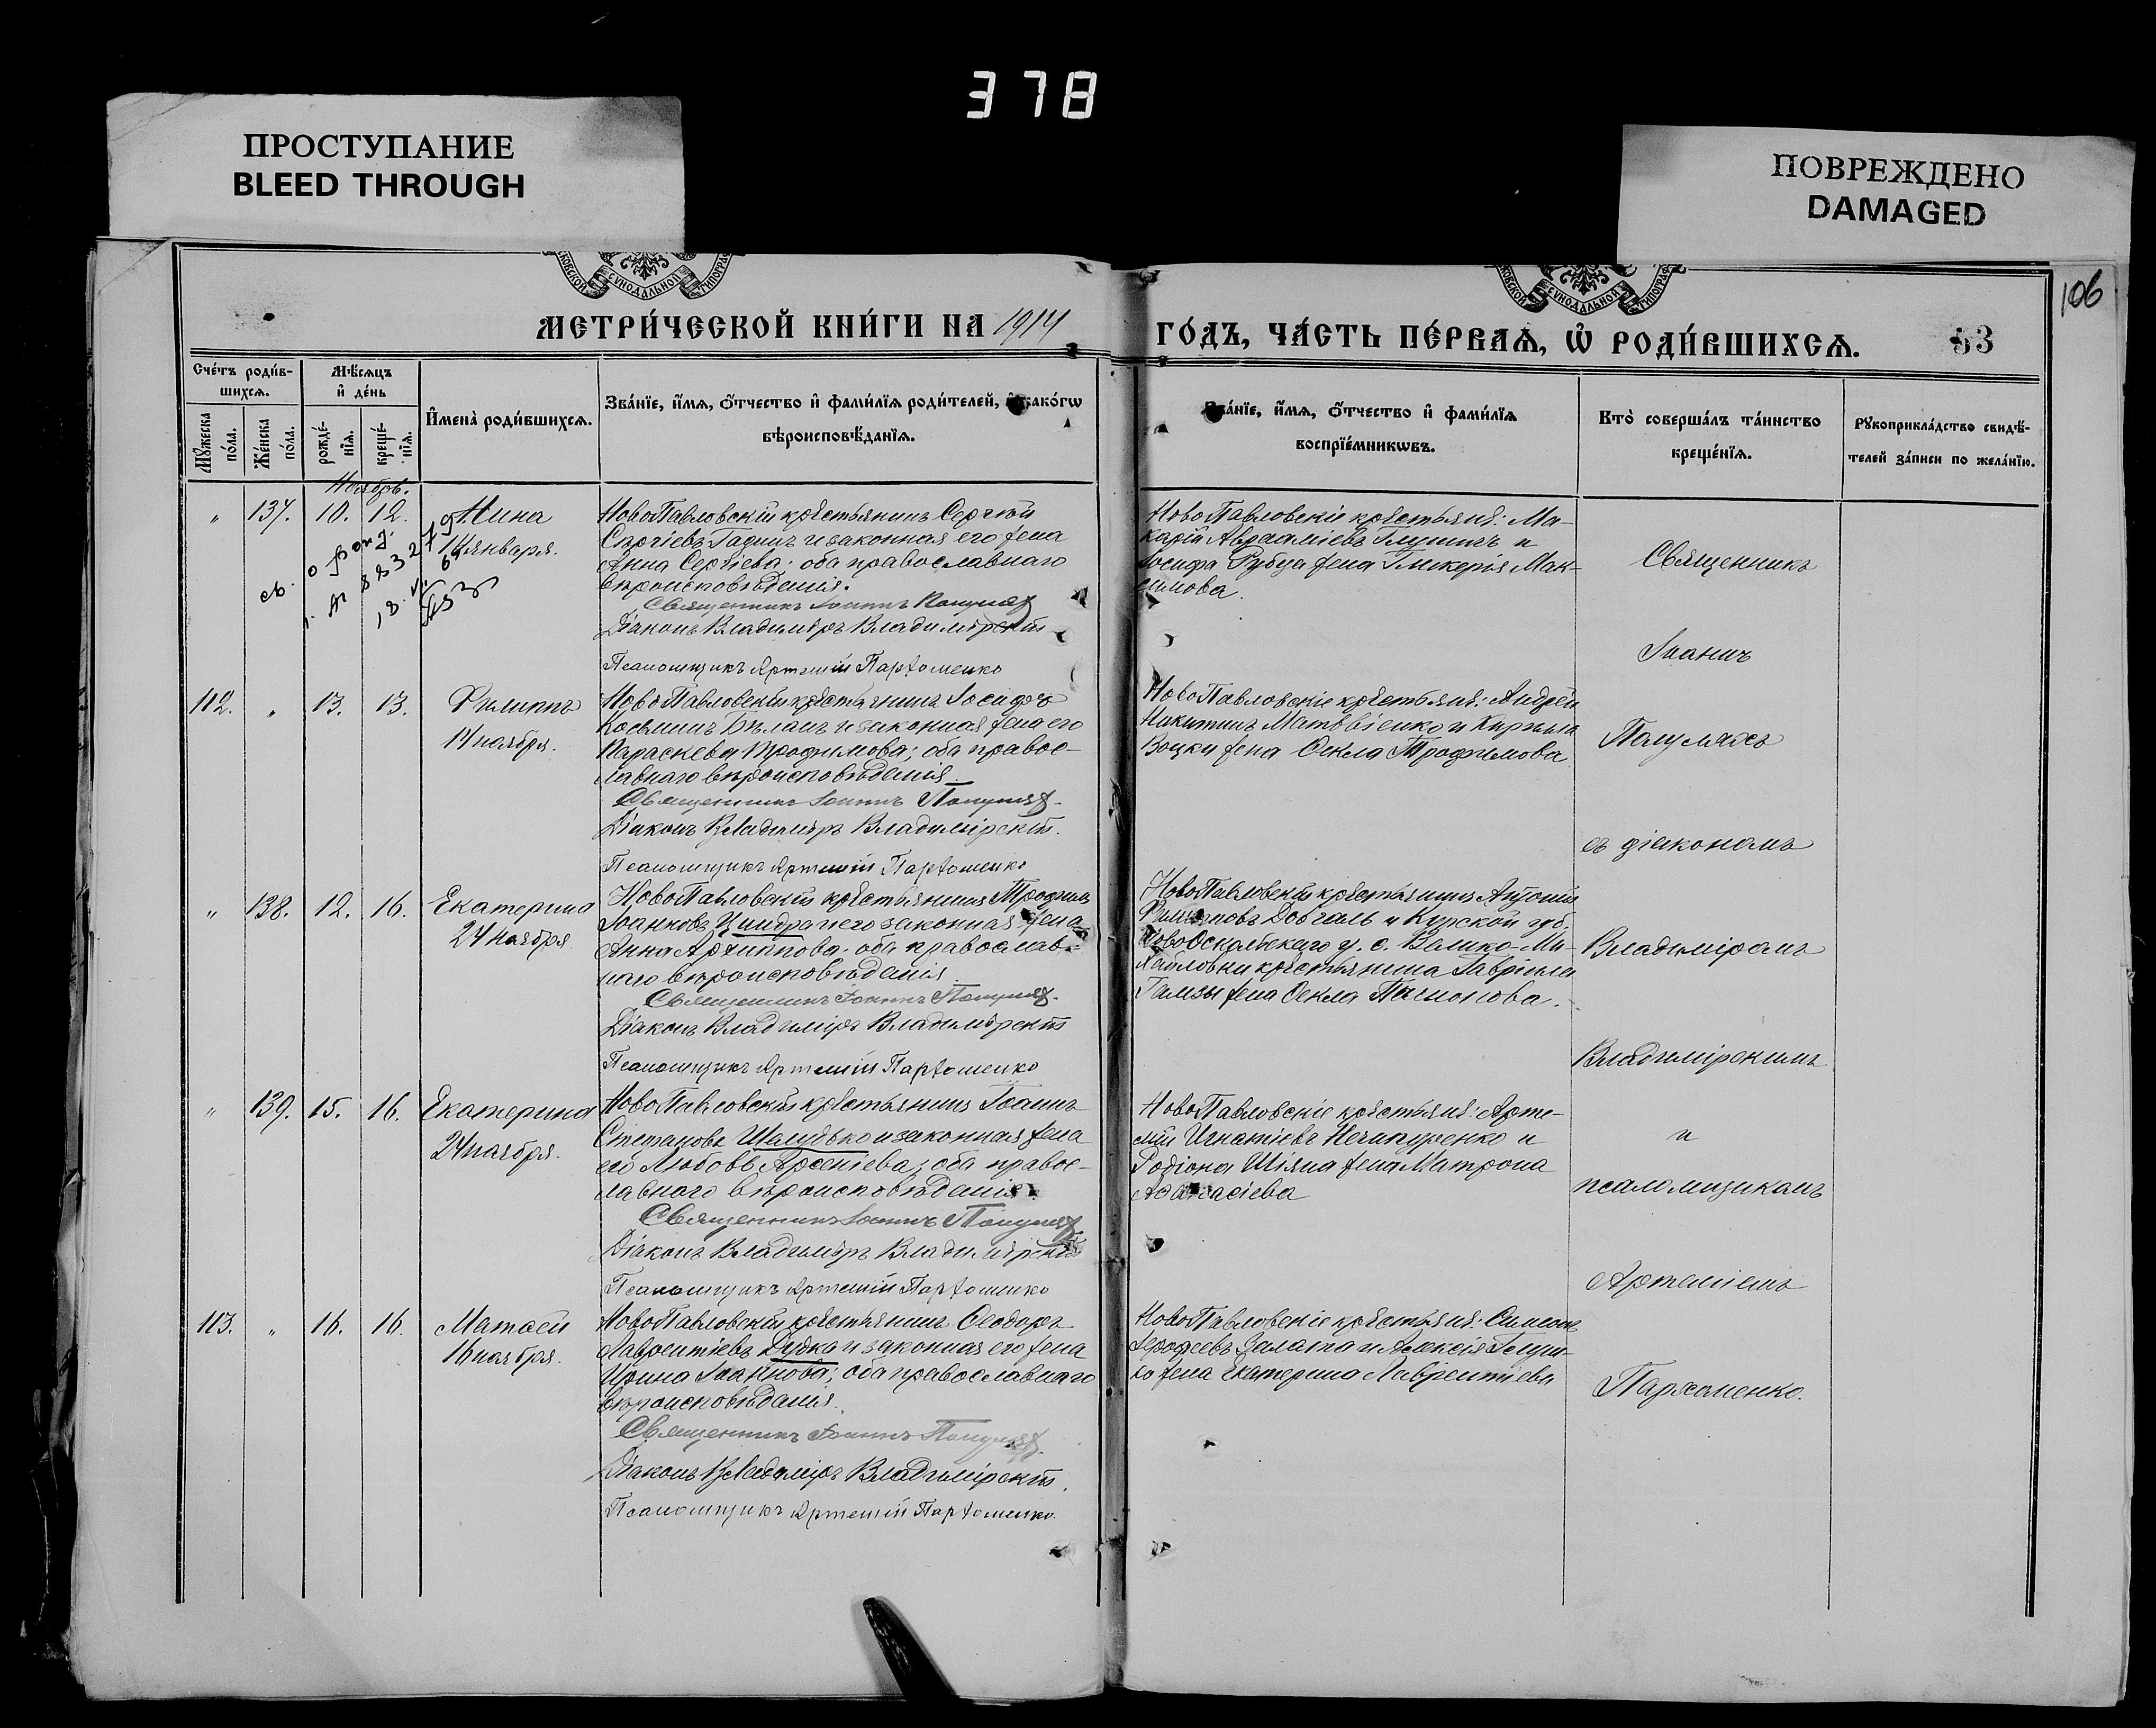 378
ПРОСТУПАНИЕ
BLEED THROUGH
ПОВРЕЖДЕНО
DAMAGED
106
МЕТРИ́ЧЕСКОЙ КНИ́ГИ НА 1914
ГО́ДЪ, ЧА́СТЬ ПЕ́РВАѦ, Ѡ҆ РОДИ́ВШИХСѦ.
53
Сче́тъ роди́в-
шихсѧ.
Мѣ́сѧцъ
и҆ де́нь
Мꙋ́жеска по́ла.
Же́нска по́ла.
рожде́-нїѧ.
креще́-нїѧ.
И҆мена̀ роди́вшихсѧ.
Зва́нїе, и҆́мѧ, ѻ҆́тчество и҆ фами́лїѧ роди́телей, и҆ како́гѡ
вѣроисповѣ́данїѧ.
Зва́нїе, и҆́мѧ, ѻ҆́тчество и҆ фами́лїѧ
воспрїе́мникѡвъ.
Кто̀ соверша́лъ та́инство
креще́нїѧ.
Рꙋкоприкла́дство свидѣ́-
телей за́писи по жела́нїю.
Ноябрь.
" 137. 10. 12. Нина
14 января.
НовоПавловскій крестьянинъ Сергій
Сергіевъ и законная его жена
Анна Сергіева; оба православнаго
вѣроисповѣданія.
Священникъ Іоаннъ
Діаконъ Владиміръ Владимірскій
Псаломщикъ Артемій Парѳоменко
НовоПавловскіе крестьяне: Ма-
карій Авраамiевъ и
Іосифа жена Гликерія Мак-
симова.
Священникъ
Іоаннъ
112. " 13. 13. Филиппъ
14 ноября.
НовоПавловскій крестьянинъ Іосифъ
Косьминъ Бѣланъ и законная жена его
Параскева Трофимова; оба правос-
лавнаго вѣроисповѣданія.
Священникъ Іоаннъ
Діаконъ Владиміръ Владимірскій.
Псаломщикъ Артемій Парѳоменко
НовоПавловскіе крестьяне: Андрей
Никитинъ Матвѣенко и Кирилла
жена Ѳекла Трофимова
съ діакономъ
" 138. 12. 16. Екатерина
24 ноября
НовоПавловскій крестьянинъ Трофимъ
Іоанновъ Циндра и его законная жена
Анна Архиппова; оба православ-
наго вѣроисповѣданія.
Священникъ Іоаннъ
Діаконъ Владиміръ Владимірскій
Псаломщикъ Артемій Парѳоменко
НовоПавловскій крестьянинъ Антоній
Филипповъ Довгаль и Курской губ.
НовоОскольскаго у. с. Ми-
хайловки крестьянина Гавріила
жена Ѳекла.
Владиміромъ
Владимірскимъ
" 139. 15. 16. Екатерина
24 ноября.
НовоПавловскій крестьянинъ Іоаннъ
Стефановъ Шалудько и законная жена
его Любовь Арсеніева; оба правос-
лавнаго вѣроисповѣданія.
Священникъ Іоаннъ
Діаконъ Владиміръ Владимірскій
Псаломщикъ Артемій Парѳоменко
НовоПавловскіе крестьяне: Арте-
мій Игнатіевъ Нечипуренко и
Родіона Шіяна жена Матрона
Аѳанасіева
и
псаломщикомъ
Артеміемъ
113. " 16. 16. Матѳей
16 ноября.
НовоПавловскій крестьянинъ Ѳеодоръ
Лаврентіевъ Дудка и законная его жена
Ирина Іоаннова; оба православнаго
вѣроисповѣданія.
Священникъ Іоаннъ
Діаконъ Владиміръ Владимірскій.
Псаломщикъ Артемій Парѳоменко.
НовоПавловскіе крестьяне: Симеонъ
и Алексія
жена Екатерина Лаврентіева
Парѳоменко.